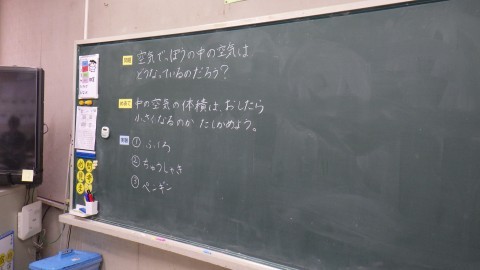 問題 空気でっぽうの中の空気は
どうなっているのだろう?
めあて 中の空気の体積は、おしたら
小さくなるのか たしかめよう。
① ふくろ
② ちゅうしゃき
③ ペンギン